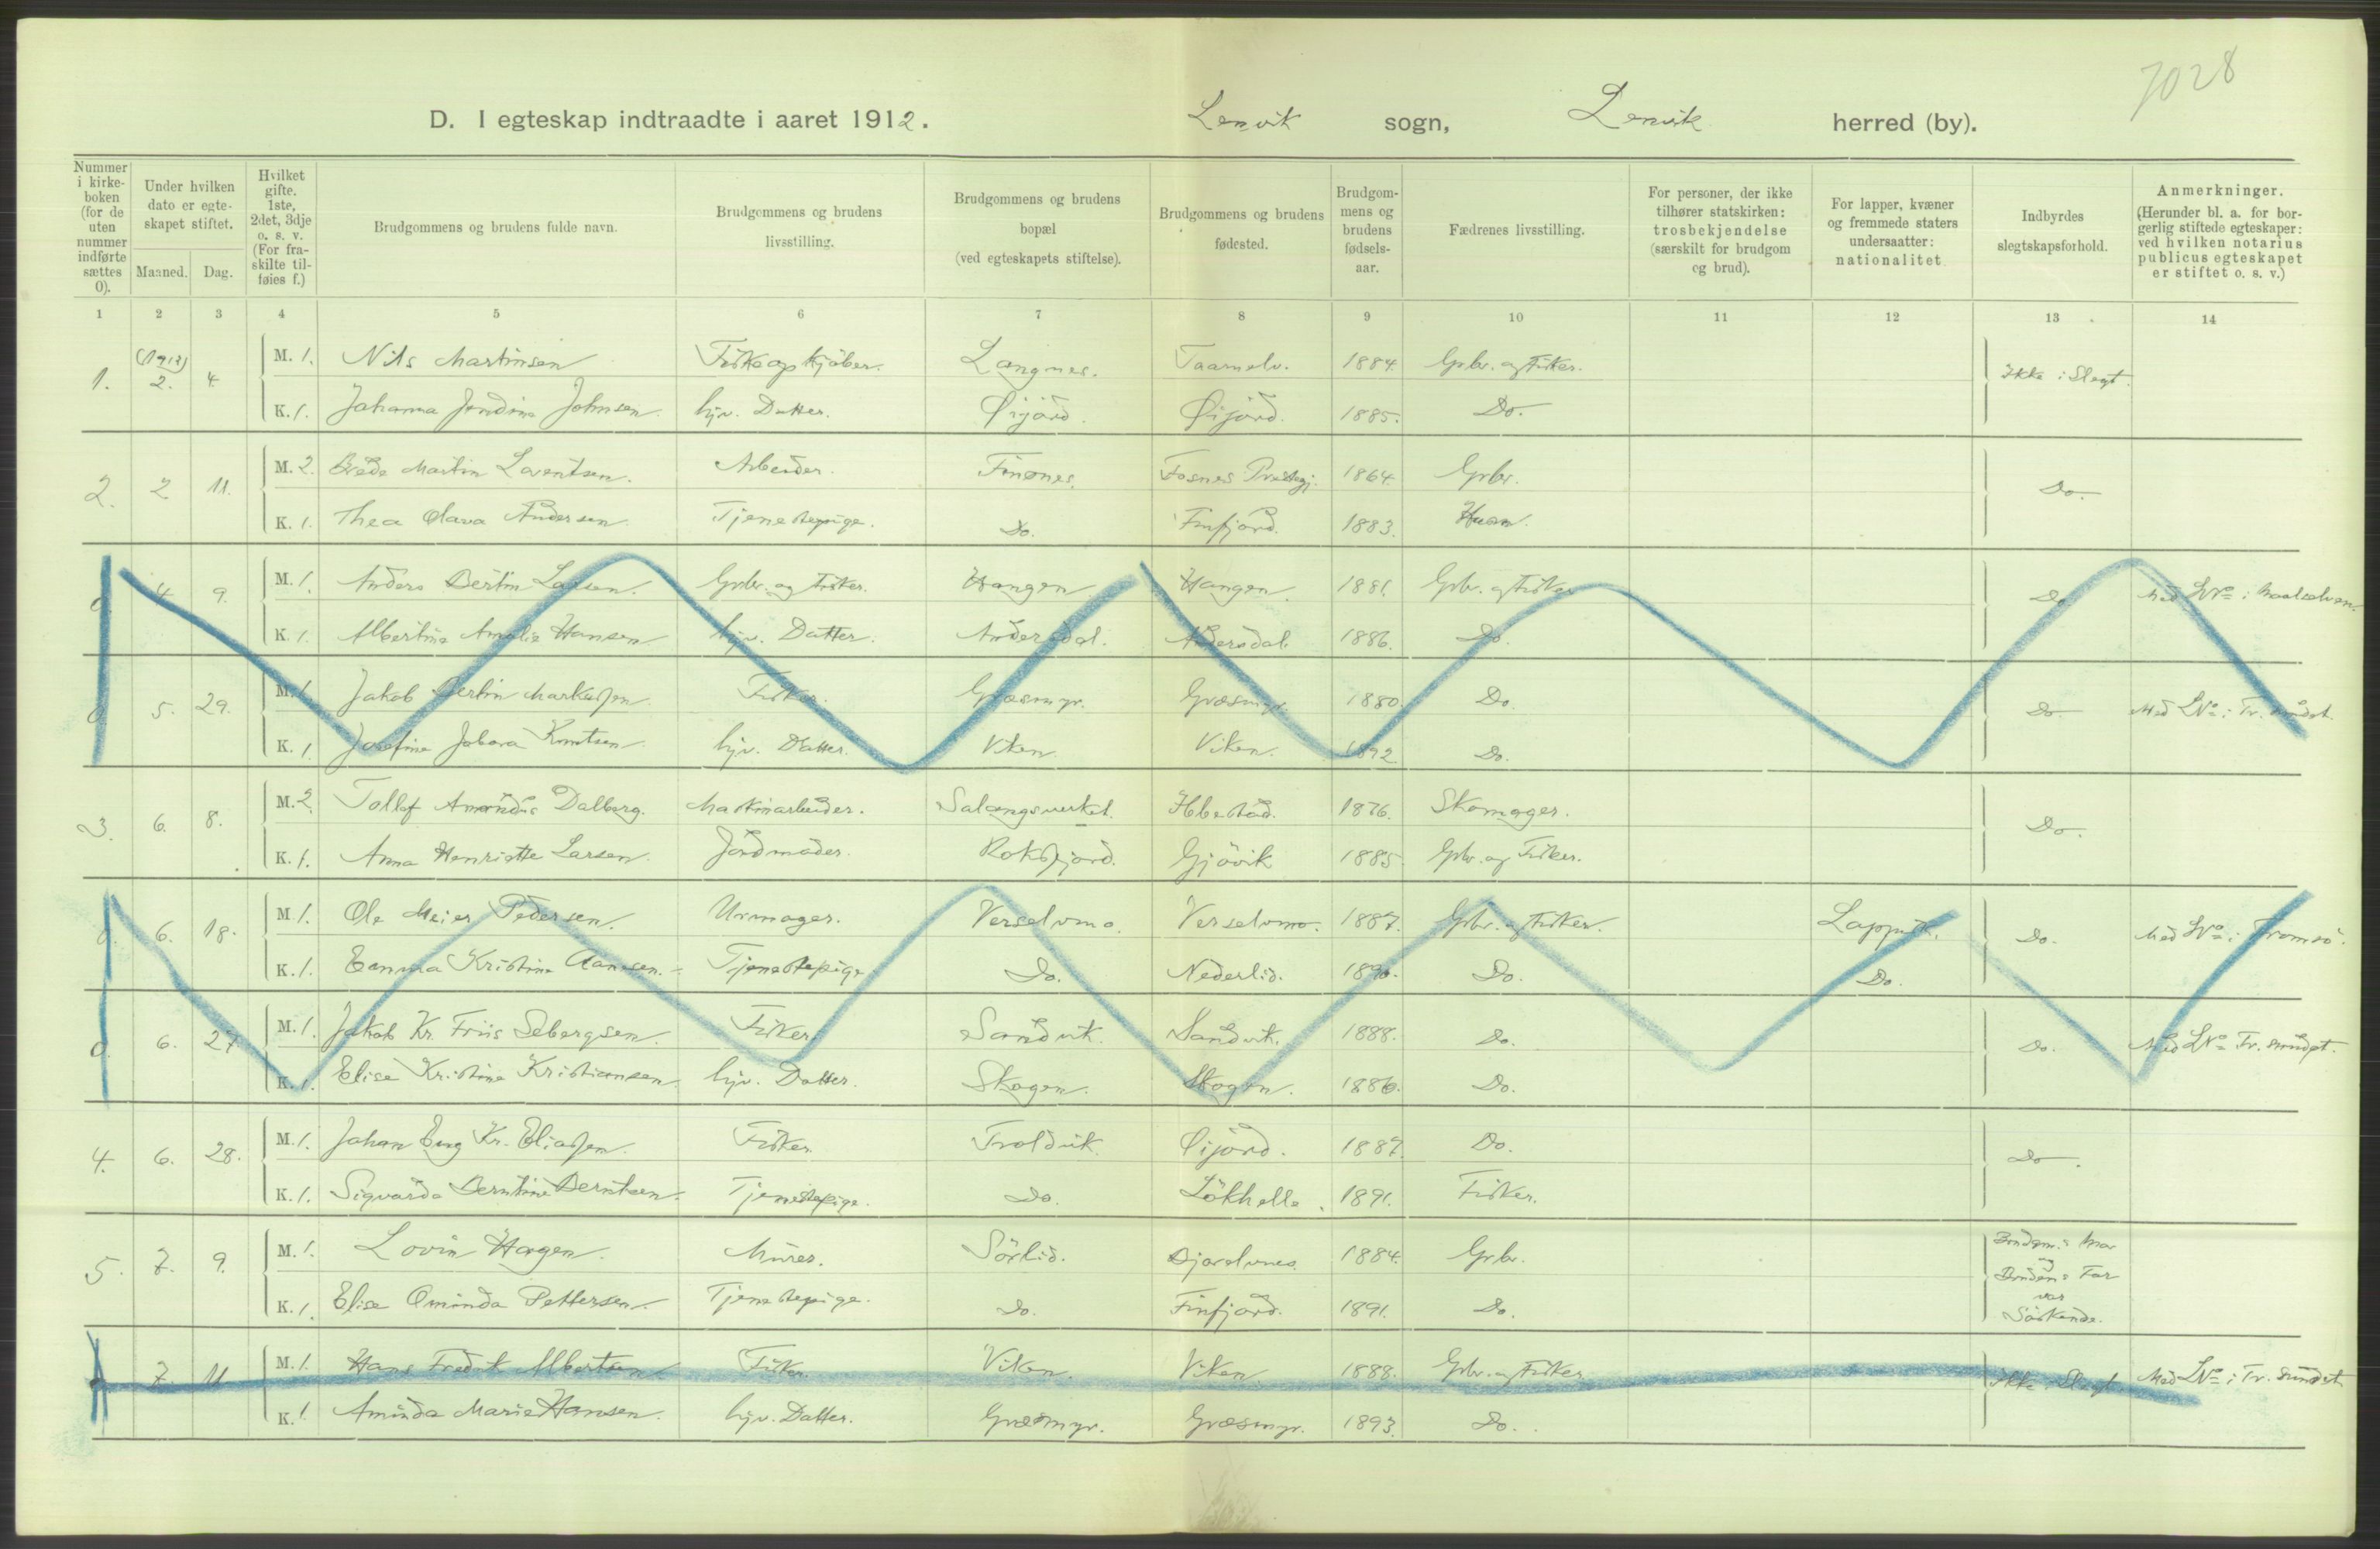 7028
D. I egteskap indtraadte i aaret 1912. Lenvik sogn, Lenvik herred (by).
Nummer i kirke-boken (for de uten nummer indførte sættes 0).
Under hvilken dato er egte-skapet stiftet.
Maaned. Dag.
Hvilket gifte. 1ste, 2det, 3dje o. s. v. (For fra-skilte til-føies f.)
Brudgommens og brudens fulde navn.
Brudgommens og brudens livsstilling.
Brudgommens og brudens bopæl (ved egteskapets stiftelse).
Brudgommens og brudens fødested.
Brudgom-mens og brudens fødsels-aar.
Fædrenes livsstilling.
For personer, der ikke tilhører statskirken: trosbekjendelse (særskilt for brudgom og brud).
For lapper, kvæner og fremmede staters undersaatter: nationalitet
Indbyrdes slegtskapsforhold.
Anmerkninger. (Herunder bl. a. for bor-gerlig stiftede egteskaper: ved hvilken notarius publicus egteskapet er stiftet o. s. v.)
1 2 3 4 5 6 7 8 9 10 11 12 13 14
1. (1912) 2. 4. M. 1. Nils Martinsen Fiskeopkjöber. Langnes. Taamelv. 1884. Grbr. og Fisker. Ikke i Slegt.
K. 1. Johanna Jendine Johnsen. hjv. Datter. Öijord. Öijord. 1885. Do.
2. 2 11. M. 2. Brede Martin Laventsen. Arbeider. Finsnes. Fosnes Prestegj. 1864. Grbr. Do.
K. 1. Thea Olava Andersen. Tjenestepige. Do. Finfjord. 1883. Husm.
0. 4. 9. M. 1. Anders Bertin Larsen. Grbr. og Fisker. Vangen Vangen. 1881. Grbr. og Fisker Do. Med LNo i Maalselven.
K. 1. Albertine Amalie Hansen hjv. Datter. Andersdal. Andersdal. 1886. Do.
0 5. 29. M. 1. Jakob Bertin Markussen. Fisker. Græsmyr. Græsmyr. 1880. Do. Do. Med LNo i Tr. sundet.
K. 1. Josefine Jakova Knutsen hjv. Datter. Viken. Viken. 1892. Do.
3. 6. 8. M. 2. Tollef Amandus Dalberg. Maskinarbeider. Salangsverket. Ibestad. 1876. Skomager. Do.
K. 1. Anna Henriette Larsen. Jordmoder. Roksfjord. Gjövik 1885 Grbr. og Fisker.
0. 6. 18. M. 1. Ole Meier Pedersen. Urmager. Verselvmo. Verselvmo. 1887. Grbr. og Fisker. Lappisk. Do. Med LNo i Tromsö.
K. 1. Emma Kristine Aanesen. Tjenestepige Do. Nederlid. 1890. Do. Do.
0. 6. 27. M. 1. Jakob Kr. Friis Sebergsen. Fisker. Sandvik. Sandvik. 1888. Do. Do. Med LNo Tr. sundet.
K. 1. Elise Kristine Kristiansen hjv. Datter. Skogen. Skogen. 1886. Do.
4. 6. 28. M. 1. Johan Eng Kr. Eliassen. Fisker. Troldvik. Öijord. 1887. Do. Do.
K. 1. Sigvarda Berntine Berntsen. Tjenestepige. Do. Lökhelle. 1891. Fisker.
5. 7. 9. M. 1. Lovin Hagen. Murer. Sörlid. Bjorelvnes. 1884. Grbr. Brudgm.s Mor og Brudens Far var Söskende.
K. 1. Elise Ominda Pettersen. Tjenestepige. Do. Finfjord. 1891. Do.
7. 11 M. 1. Hans Fredrik Albertsen Fisker. Viken. Viken 1888. Grbr. og Fisker Ikke i Slegt. Med LNo i Tr. sundet
K. 1 Aminda Marie Hansen. hjv. Datter. Græsmyr. Græsmyr. 1893. Do.